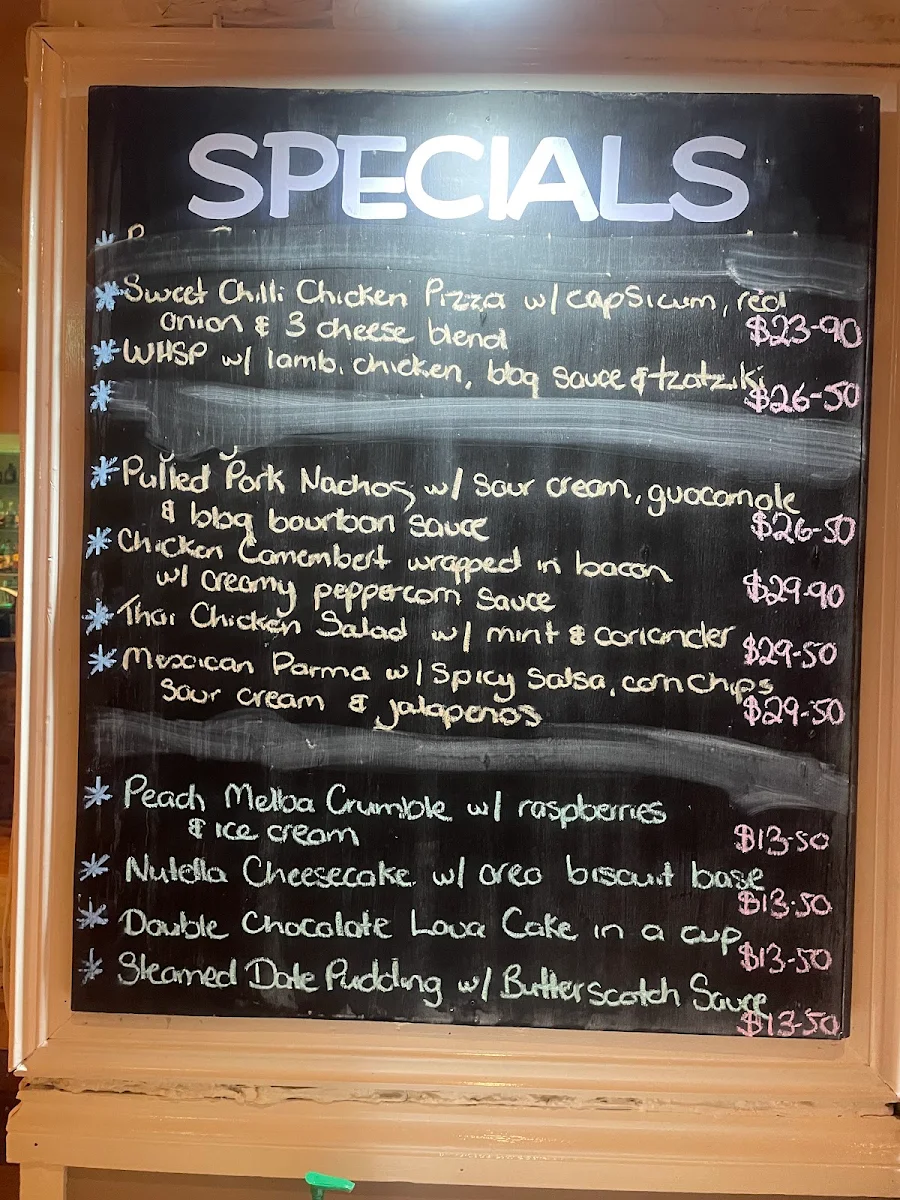 SPECIALS
* Sweet Chilli Chicken Pizza w/ capsicum, red
onion & 3 cheese blend $23-90
* WHSP w/ lamb, chicken, bbq sauce & tzatziki
$26-50
*
* Pulled Pork Nachos w/ sour cream, guacamole
& bbq bourbon sauce $26-50
* Chicken Camembert wrapped in bacon
w/ creamy peppercorn sauce $29-90
* Thai Chicken Salad w/ mint & coriander $29-50
* Mexican Parma w/ Spicy Salsa, corn chips
sour cream & jalapenos $29-50
* Peach Melba Crumble w/ raspberries
& ice cream $13-50
* Nutella Cheesecake w/ oreo biscuit base
$13-50
* Double Chocolate Lava Cake in a cup
$13-50
* Steamed Date Pudding w/ Butterscotch Sauce
$13-50